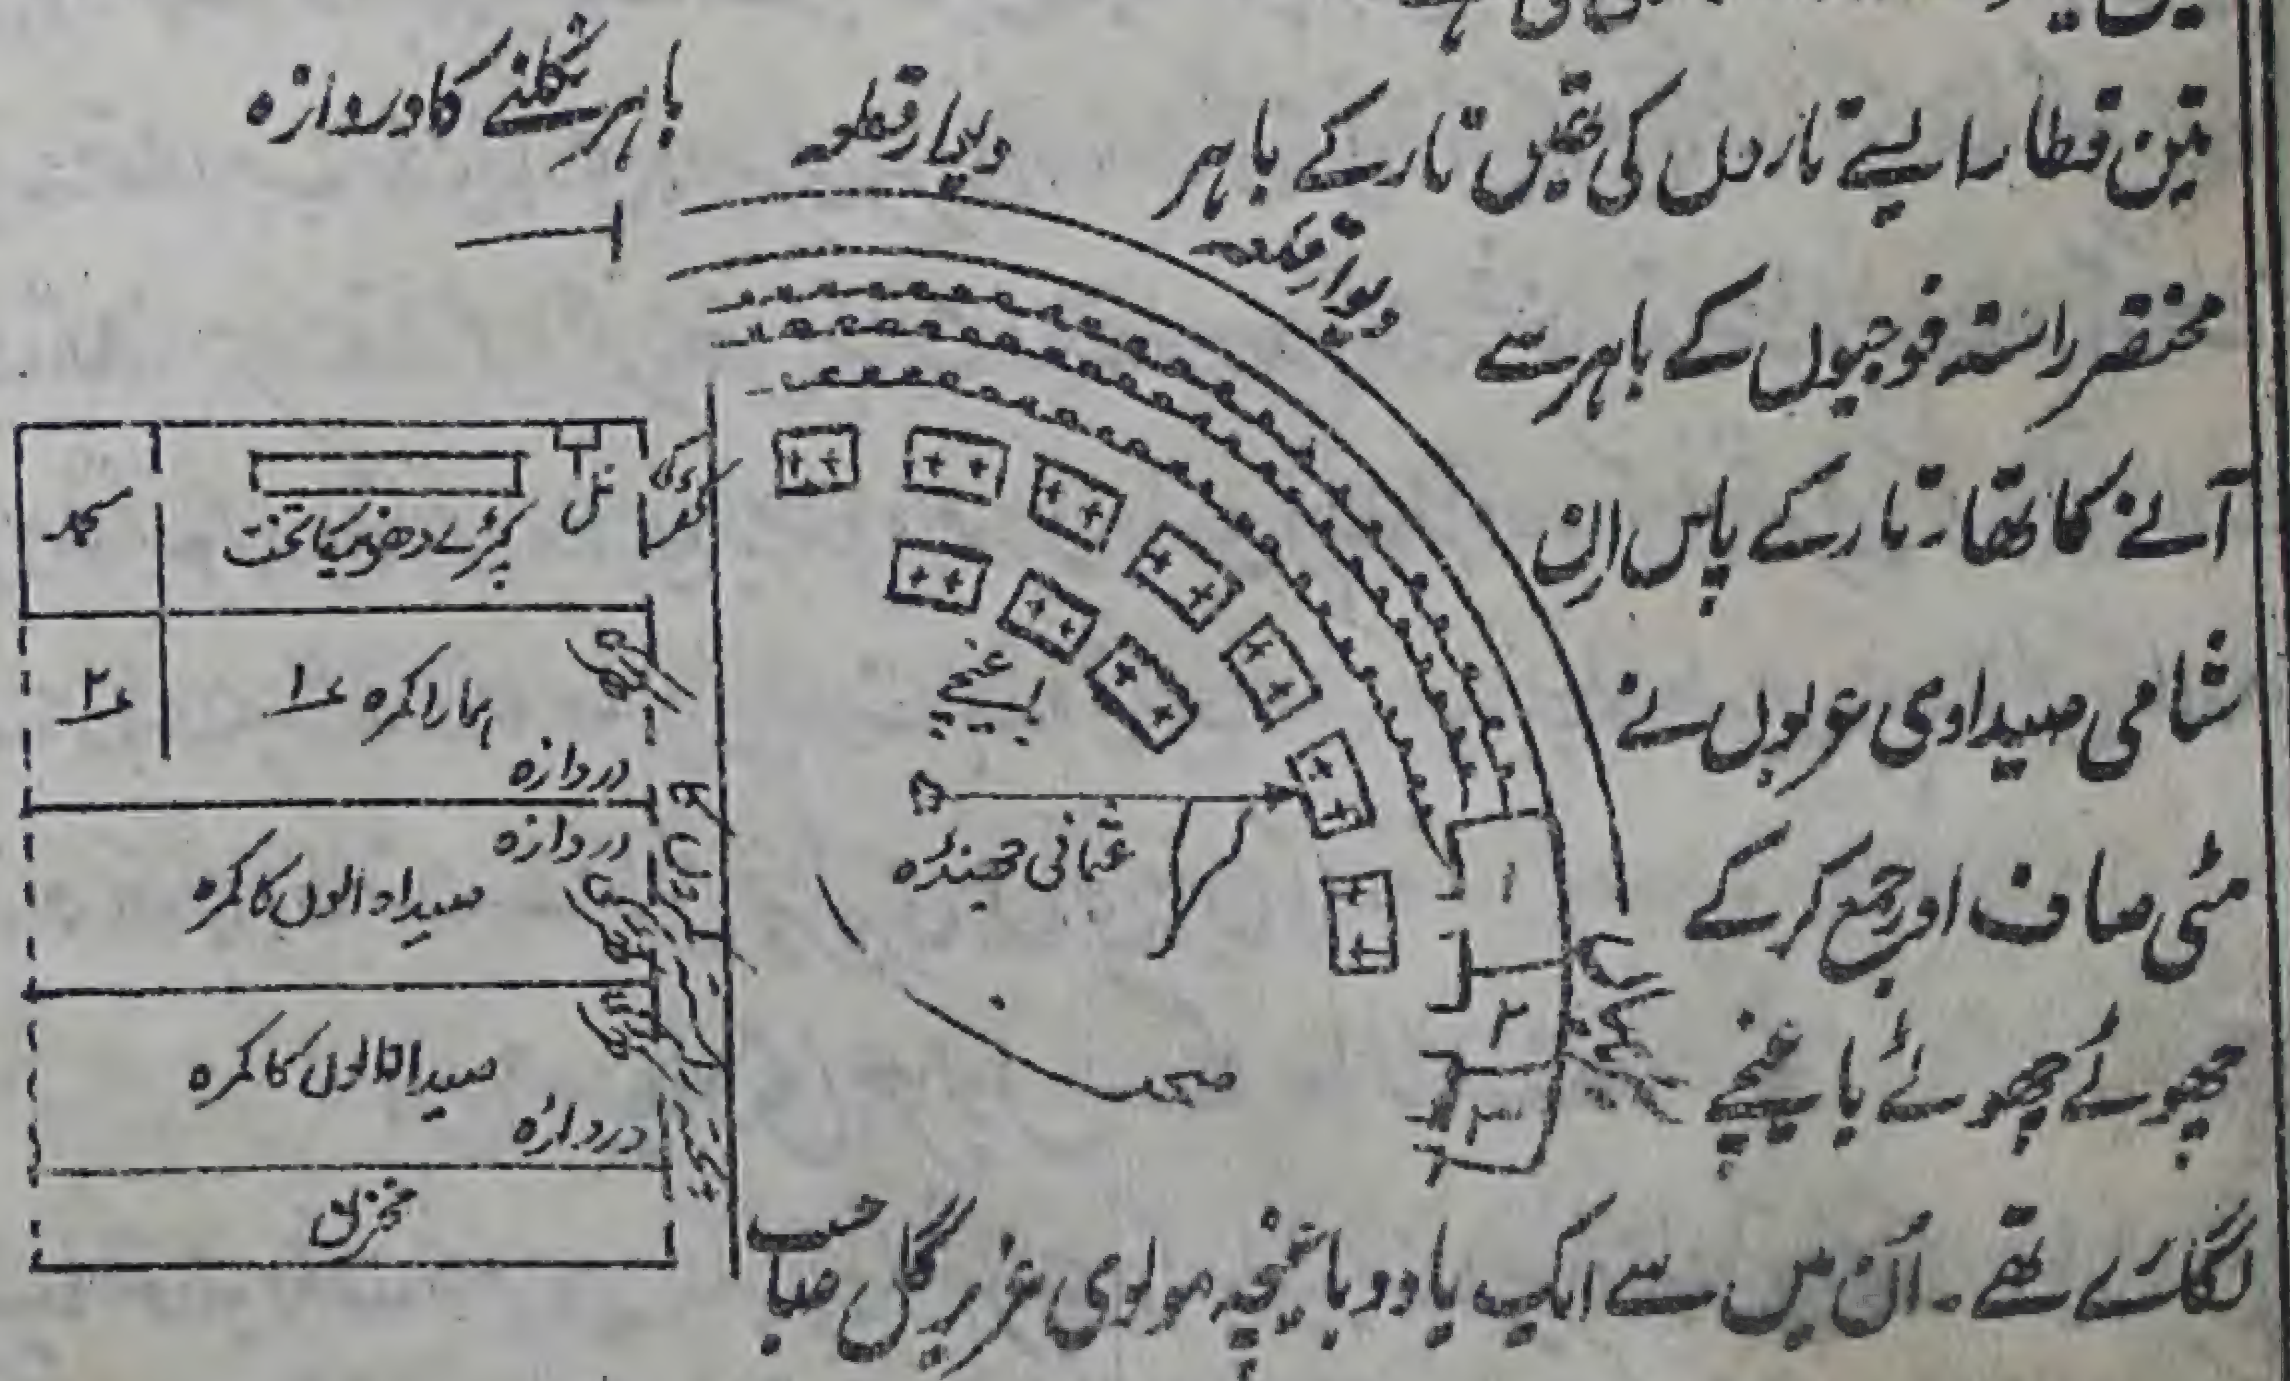 تین قطار ایسے تاروں کی تھیں تار کے باہر
مختصر راستہ فوجیوں کے باہر سے
آنے کا تھا۔ تار کے پاس اِن
شامی صیداوی عربوں نے
مٹی صاف اور جمع کر کے
چھوٹے چھوٹے باغیچے
لگائے تھے۔ اُن میں سے ایک یا دو باغیچہ مولوی عزیر گل صاحب
باہر نکلنے کا دروازہ
دیوار قلعہ
دیوار قلعہ
کھڑکی
نل
کپڑے دھونیکا تخت
ہمارا کمرہ ۱؎
۲؎
دروازہ
دروازہ
صیدا والوں کا کمرہ
صیدا والوں کا کمرہ
دروازہ
مخزن
باغیچے
عثمانی جھنڈہ
صحن
۱
۲
۳